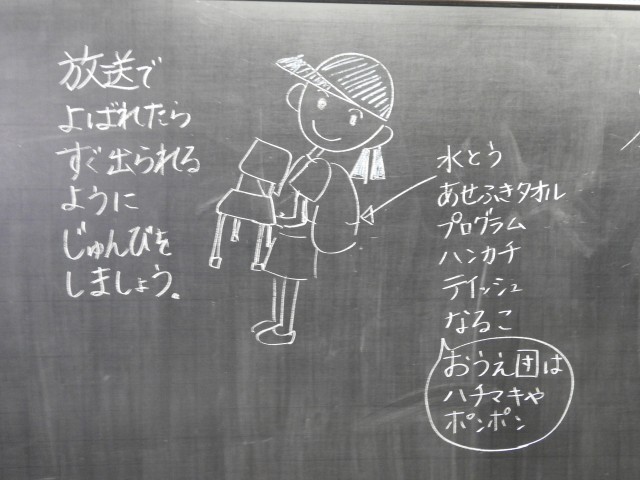 放送で
よばれたら
すぐ出られる
ように
じゅんびを
しましょう。
水とう
あせふきタオル
プログラム
ハンカチ
ティッシュ
なるこ
おうえ団は
ハチマキや
ポンポン